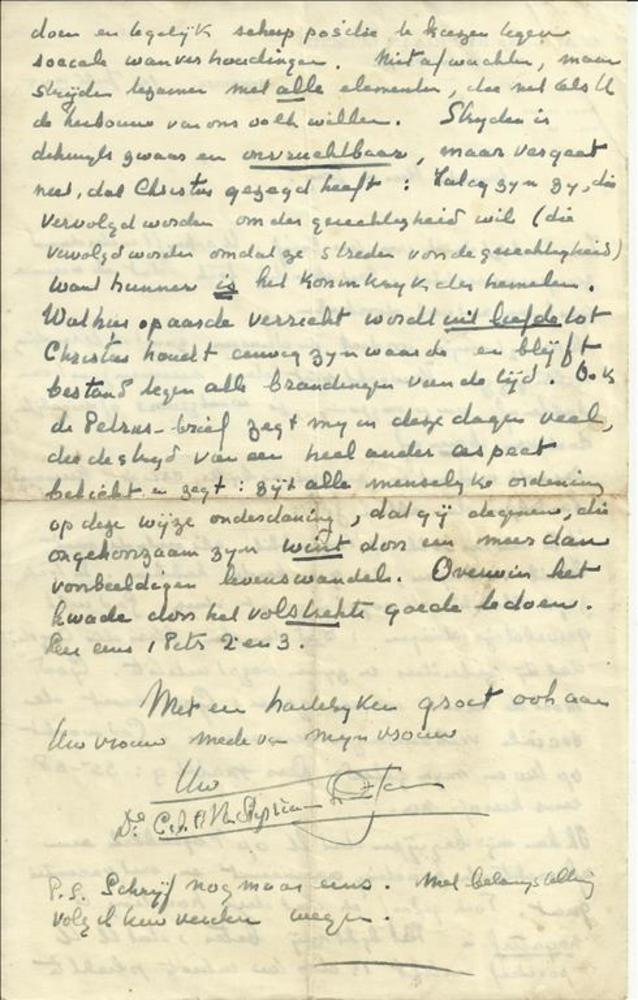 doen en tegelijk scherp positie te kiezen tegen
sociale wanverhoudingen. Niet afwachten, maar
strijden tezamen met alle elementen, die net als U
de herbouw van ons volk willen. Strijden is
dikwijls zwaar en onvruchtbaar, maar vergeet
niet, dat Christus gezegd heeft: Zalig zijn zy, die
vervolgd worden om der gerechtigheid wil (die
vervolgd worden omdat ze streden voor de gerechtigheid)
want hunner is het Koninkryk der hemelen.
Wat hier op aarde verricht wordt uit liefde tot
Christus houdt eeuwig zyn waarde en blijft
bestand tegen alle brandingen van de tijd. Ook
de Petrus-brief zegt my in deze dagen veel,
die de stryd van een heel ander aspect
belicht en zegt: zijt alle menselyke ordening
op deze wijze onderdanig, dat gij degenen, die
ongehoorzaam zyn wint door een meer dan
voorbeeldigen levenswandel. Overwin het
kwade door het volstrekte goede te doen.
Lees eens 1 Petr 2 en 3.
Met een hartelyken groet ook aan
Uw vrouw mede van mijn vrouw
Uw
Ds.
P.S. Schrijf nog maar eens. Met belangstelling
volg ik uw verdere wegen.